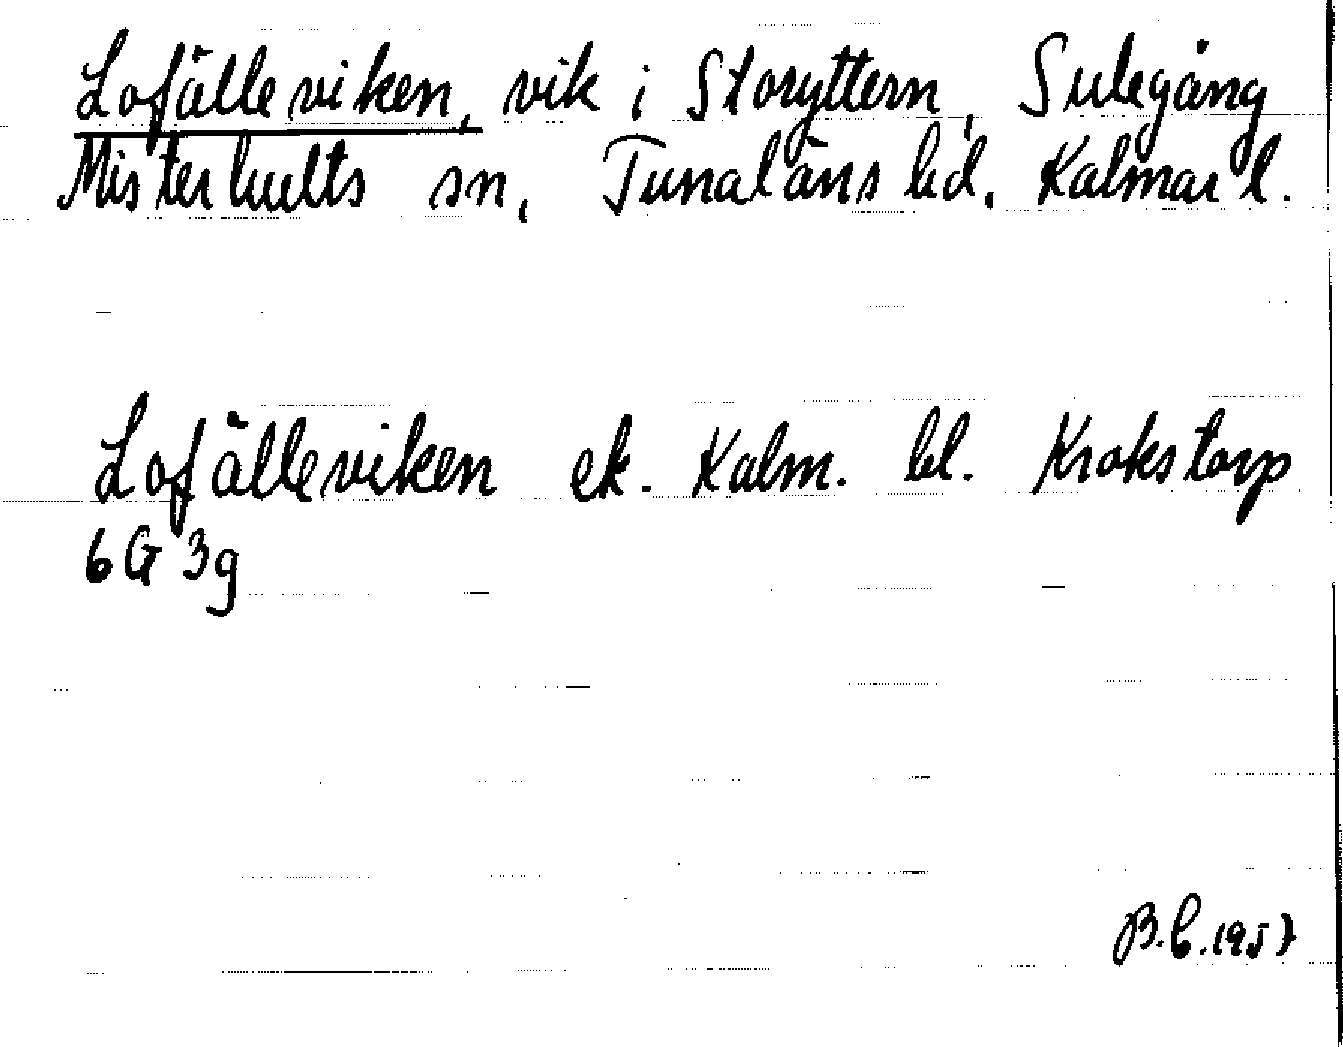 Lofälleviken, vik i Storyttern, Sulegång
Misterhults sn, Tunaläns hd, Kalmar l.
Lofälleviken ek. Kalm. bl. Krokstorp
6G 3g
B.C. 1957